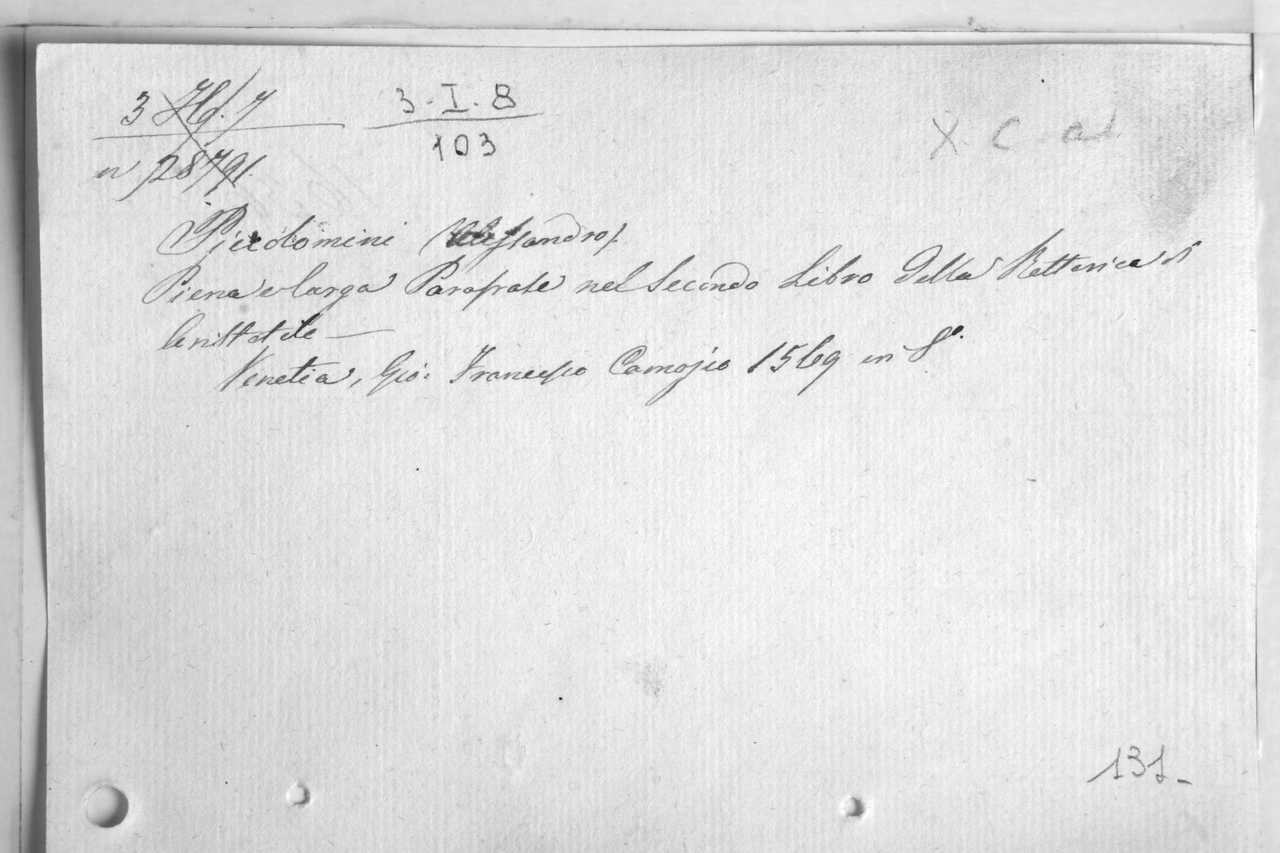 3 Hd. 7
3. I. 8
103
n 28791.
X. C. a
Piccolomini (Alessandro).
Piena e larga Parafrase nel Secondo Libro della Retterica di
Aristotile —
Venetia, Gio: Francesco Camozio 1569 in 8º.
131-